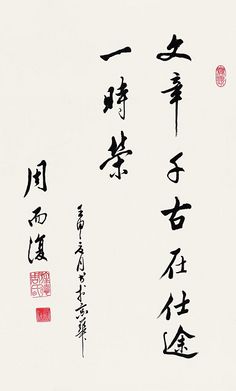 文章千古在仕途
一時榮
壬申夏月书於京華
周而復